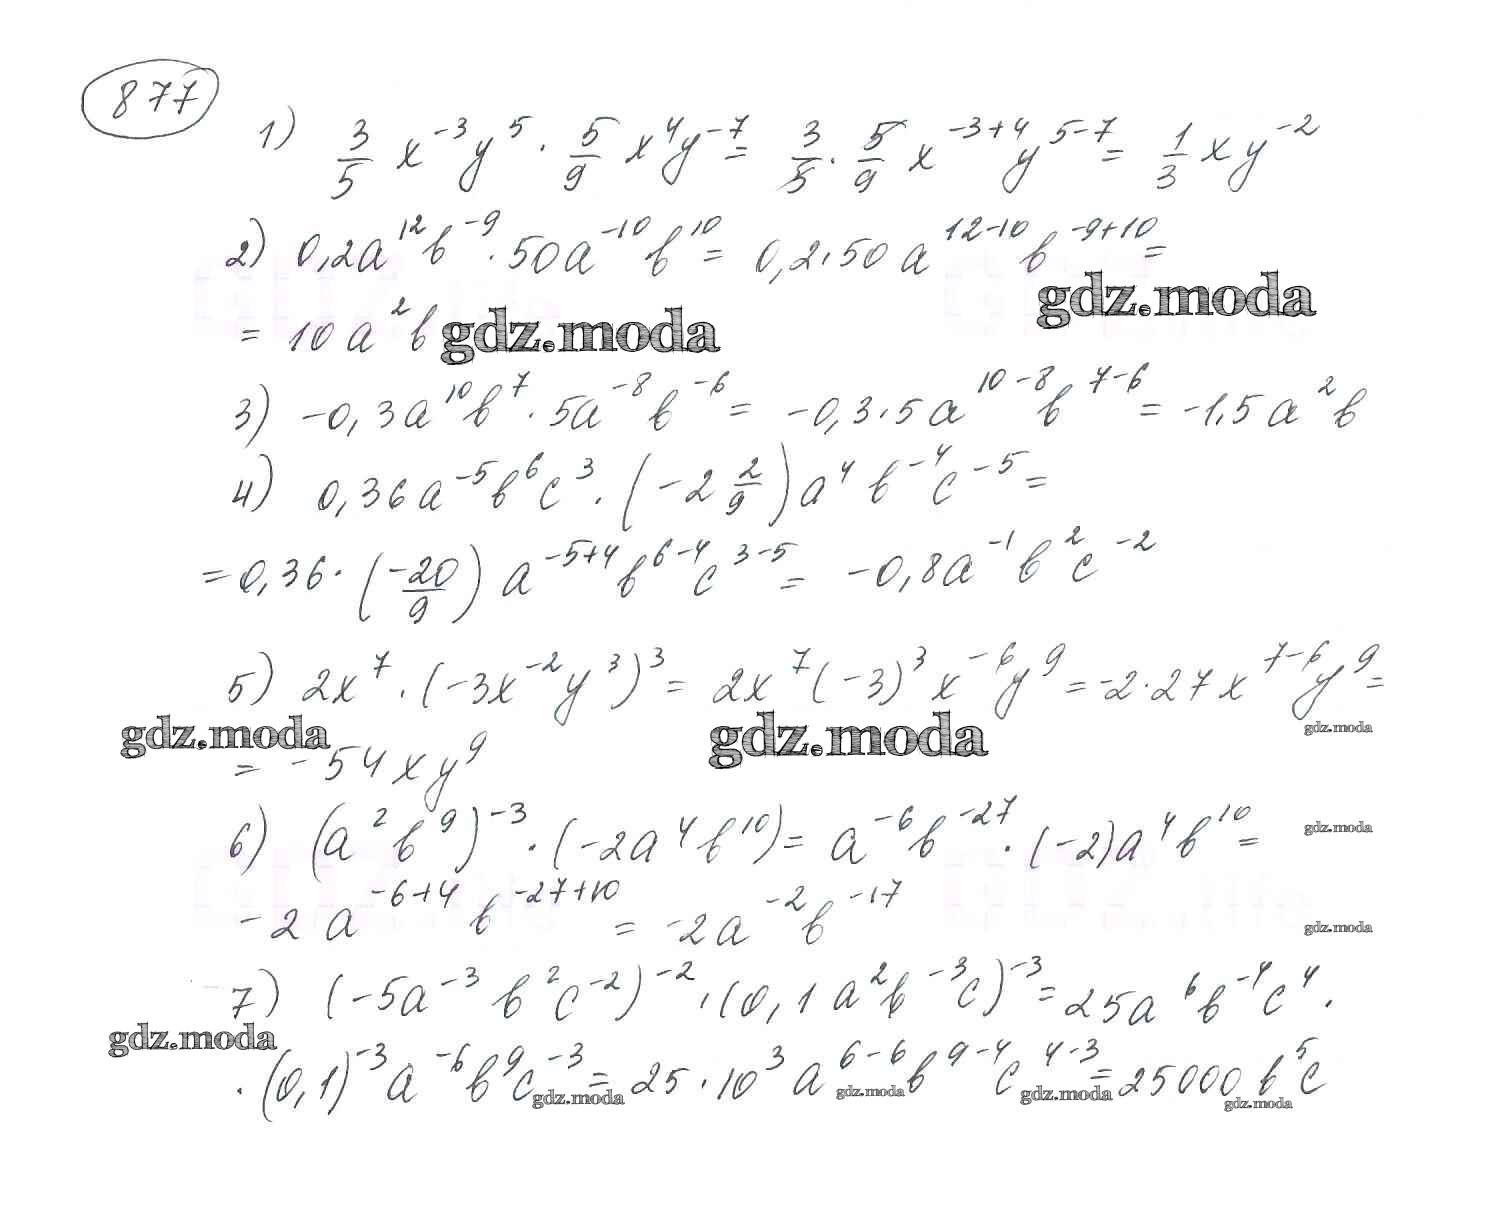 877
1) 3/5 x^-3 y^5 · 5/9 x^4 y^-7 = 3/5 · 5/9 x^-3+4 y^5-7 = 1/3 x y^-2
2) 0,2a^12 b^-9 · 50a^-10 b^10 = 0,2·50 a^12-10 b^-9+10 =
gdz.moda
= 10 a^2 b gdz.moda
3) -0,3a^10 b^7 · 5a^-8 b^-6 = -0,3·5a^10-8 b^7-6 = -1,5a^2 b
4) 0,36a^-5 b^6 c^3 · (-2 2/9) a^4 b^-4 c^-5 =
= 0,36 · (-20/9) a^-5+4 b^6-4 c^3-5 = -0,8a^-1 b^2 c^-2
5) 2x^7 · (-3x^-2 y^3)^3 = 2x^7 (-3)^3 x^-6 y^9 = -2·27 x^7-6 y^9 =
gdz.moda gdz.moda gdz.moda
= -54 x y^9
6) (a^2 b^9)^-3 · (-2a^4 b^10) = a^-6 b^-27 · (-2)a^4 b^10 = gdz.moda
-2 a^-6+4 b^-27+10 = -2a^-2 b^-17 gdz.moda
7) (-5a^-3 b^2 c^-2)^-2 · (0,1a^2 b^-3 c)^-3 = 25a^6 b^-4 c^4 ·
gdz.moda
· (0,1)^-3 a^-6 b^9 c^-3 = 25·10^3 a^6-6 b^9-4 c^4-3 = 25000 b^5 c
gdz.moda gdz.moda gdz.moda gdz.moda